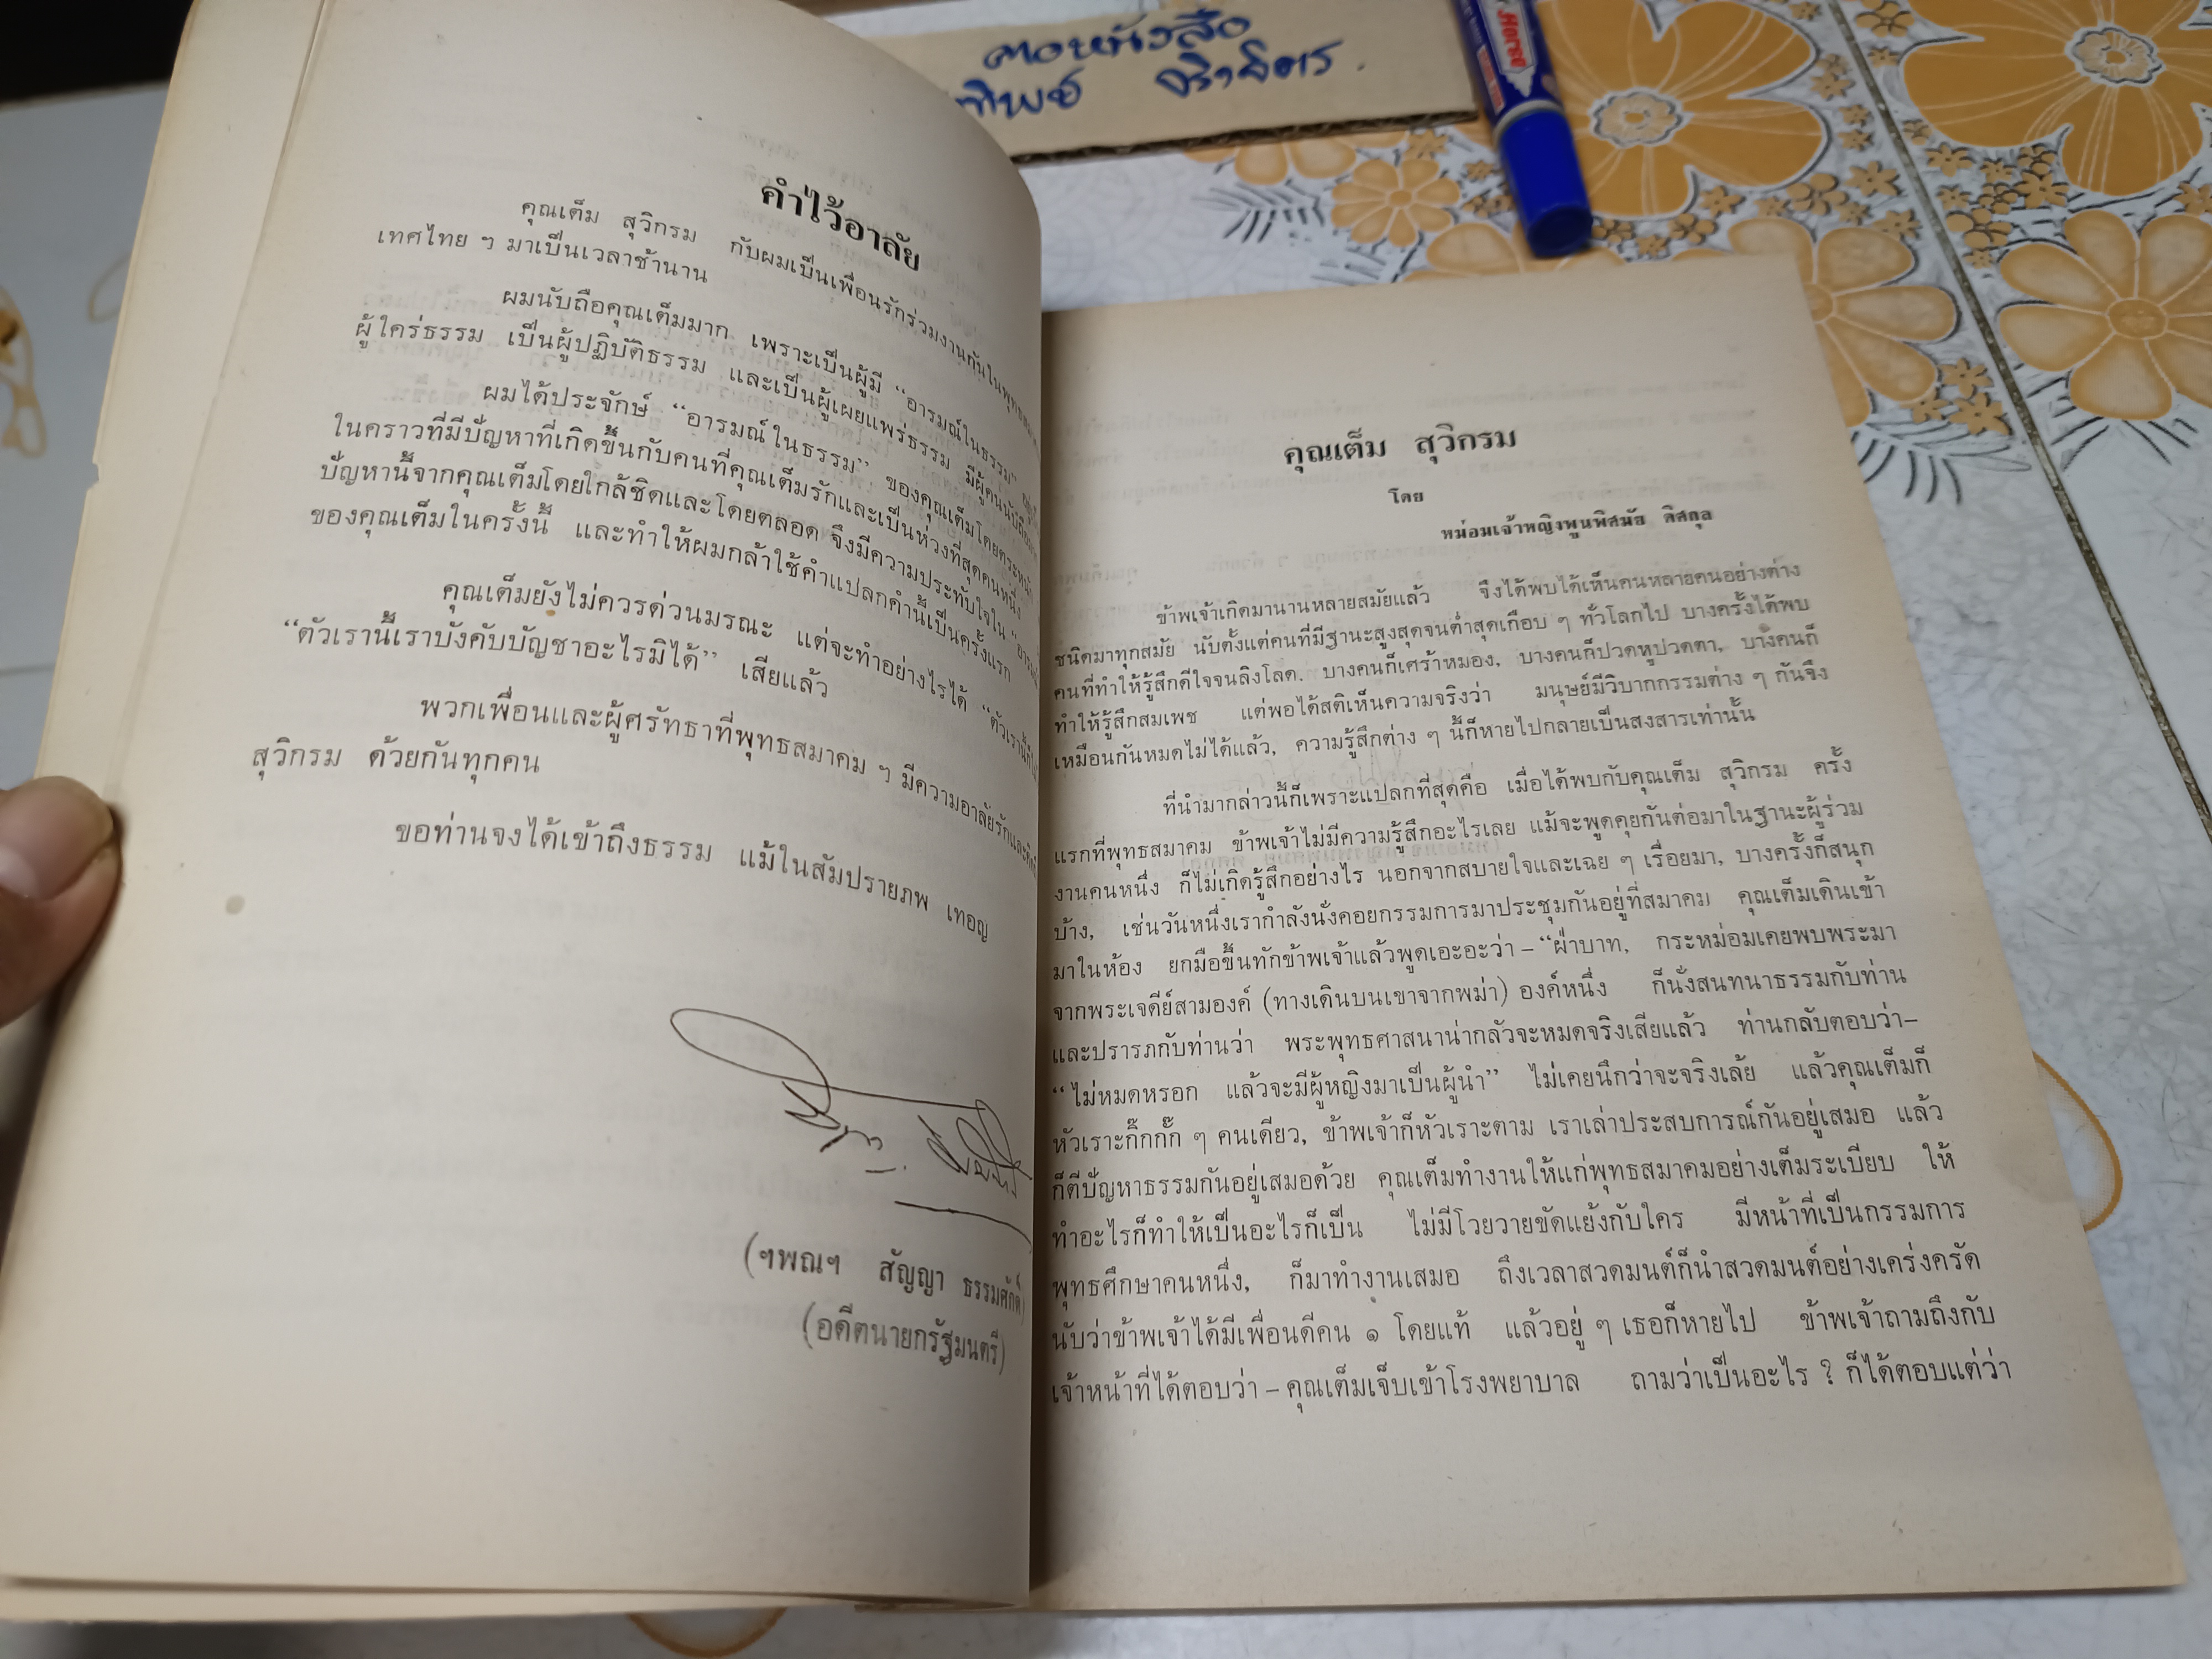 ตอหนังสือ
ทิพย์ จิราจิตร.
Horse
คำไว้อาลัย
คุณเต็ม สุวิกรม กับผมเป็นเพื่อนรักร่วมงานกันในพุทธ
เทศไทย ฯ มาเป็นเวลาช้านาน
ผมนับถือคุณเต็มมาก เพราะเป็นผู้มี “อารมณ์ในธรรม”
ผู้ใคร่ธรรม เป็นผู้ปฏิบัติธรรม และเป็นผู้เผยแพร่ธรรม มีผู้คนนับถือ
ผมได้ประจักษ์ “อารมณ์ในธรรม” ของคุณเต็มโดยตระหนัก
ในคราวที่มีปัญหาที่เกิดขึ้นกับคนที่คุณเต็มรักและเป็นห่วงที่สุดคนหนึ่ง
ปัญหานี้จากคุณเต็มโดยใกล้ชิดและโดยตลอด จึงมีความประทับใจใน
ของคุณเต็มในครั้งนี้ และทำให้ผมกล้าใช้คำแปลกคำนี้เป็นครั้งแรก
คุณเต็มยังไม่ควรด่วนมรณะ แต่จะทำอย่างไรได้
“ตัวเรานี้เราบังคับบัญชาอะไรมิได้” เสียแล้ว
พวกเพื่อนและผู้ศรัทธาที่พุทธสมาคม ฯ มีความอาลัยรักและ
สุวิกรม ด้วยกันทุกคน
ขอท่านจงได้เข้าถึงธรรม แม้ในสัมปรายภพ เทอญ
(ฯพณฯ สัญญา ธรรมศักดิ์)
(อดีตนายกรัฐมนตรี)
คุณเต็ม สุวิกรม
โดย
หม่อมเจ้าหญิงพูนพิศมัย ดิศกุล
ข้าพเจ้าเกิดมานานหลายสมัยแล้ว จึงได้พบได้เห็นคนหลายคนอย่างต่าง
ชนิดมาทุกสมัย นับตั้งแต่คนที่มีฐานะสูงสุดจนต่ำสุดเกือบ ๆ ทั่วโลกไป บางครั้งได้พบ
คนที่ทำให้รู้สึกดีใจจนลิงโลด. บางคนก็เศร้าหมอง, บางคนก็ปวดหูปวดตา, บางคนก็
ทำให้รู้สึกสมเพช แต่พอได้สติเห็นความจริงว่า มนุษย์มีวิบากกรรมต่าง ๆ กันจึง
เหมือนกันหมดไม่ได้แล้ว, ความรู้สึกต่าง ๆ นี้ก็หายไปกลายเป็นสงสารเท่านั้น
ที่นำมากล่าวนี้ก็เพราะแปลกที่สุดคือ เมื่อได้พบกับคุณเต็ม สุวิกรม ครั้ง
แรกที่พุทธสมาคม ข้าพเจ้าไม่มีความรู้สึกอะไรเลย แม้จะพูดคุยกันต่อมาในฐานะผู้ร่วม
งานคนหนึ่ง ก็ไม่เกิดรู้สึกอย่างไร นอกจากสบายใจและเฉย ๆ เรื่อยมา, บางครั้งก็สนุก
บ้าง, เช่นวันหนึ่งเรากำลังนั่งคอยกรรมการมาประชุมกันอยู่ที่สมาคม คุณเต็มเดินเข้า
มาในห้อง ยกมือขึ้นทักข้าพเจ้าแล้วพูดเอะอะว่า – “ฝ่าบาท, กระหม่อมเคยพบพระมา
จากพระเจดีย์สามองค์ (ทางเดินบนเขาจากพม่า) องค์หนึ่ง ก็นั่งสนทนาธรรมกับท่าน
และปรารภกับท่านว่า พระพุทธศาสนาน่ากลัวจะหมดจริงเสียแล้ว ท่านกลับตอบว่า–
“ไม่หมดหรอก แล้วจะมีผู้หญิงมาเป็นผู้นำ” ไม่เคยนึกว่าจะจริงเล้ย แล้วคุณเต็มก็
หัวเราะกิ๊กกั๊ก ๆ คนเดียว, ข้าพเจ้าก็หัวเราะตาม เราเล่าประสบการณ์กันอยู่เสมอ แล้ว
ก็ตีปัญหาธรรมกันอยู่เสมอด้วย คุณเต็มทำงานให้แก่พุทธสมาคมอย่างเต็มระเบียบ ให้
ทำอะไรก็ทำให้เป็นอะไรก็เป็น ไม่มีโวยวายขัดแย้งกับใคร มีหน้าที่เป็นกรรมการ
พุทธศึกษาคนหนึ่ง, ก็มาทำงานเสมอ ถึงเวลาสวดมนต์ก็นำสวดมนต์อย่างเคร่งครัด
นับว่าข้าพเจ้าได้มีเพื่อนดีคน ๑ โดยแท้ แล้วอยู่ ๆ เธอก็หายไป ข้าพเจ้าถามถึงกับ
เจ้าหน้าที่ได้ตอบว่า – คุณเต็มเจ็บเข้าโรงพยาบาล ถามว่าเป็นอะไร ? ก็ได้ตอบแต่ว่า